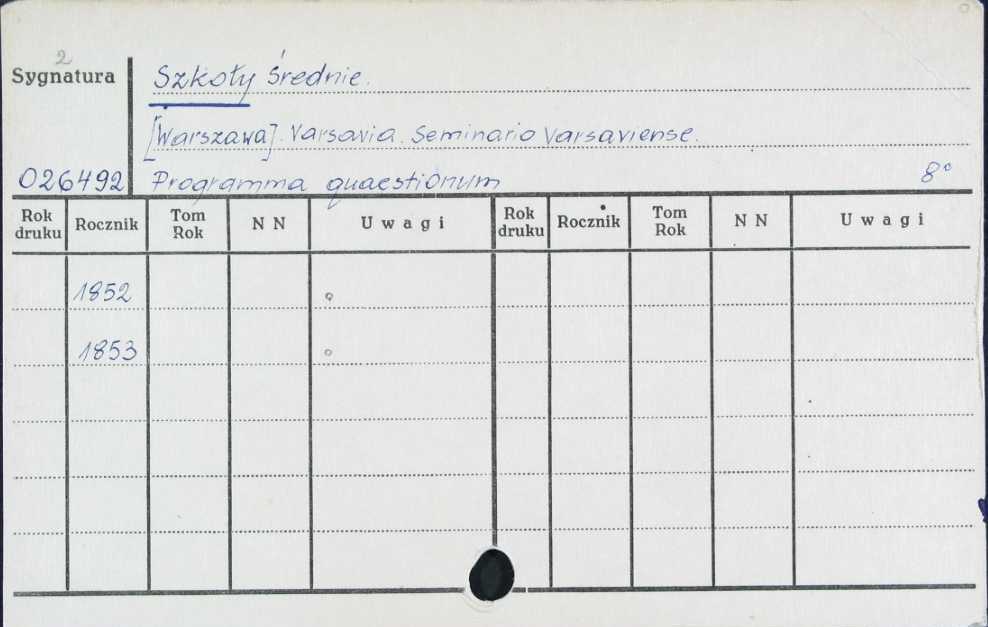 2
Sygnatura Szkoły średnie.
[Warszawa]. Varsavia. Seminario Varsaviense.
026492 Programma quaestionum 8°
Rok druku Rocznik Tom Rok N N Uwagi Rok druku Rocznik Tom Rok N N Uwagi
1852 o
1853 o